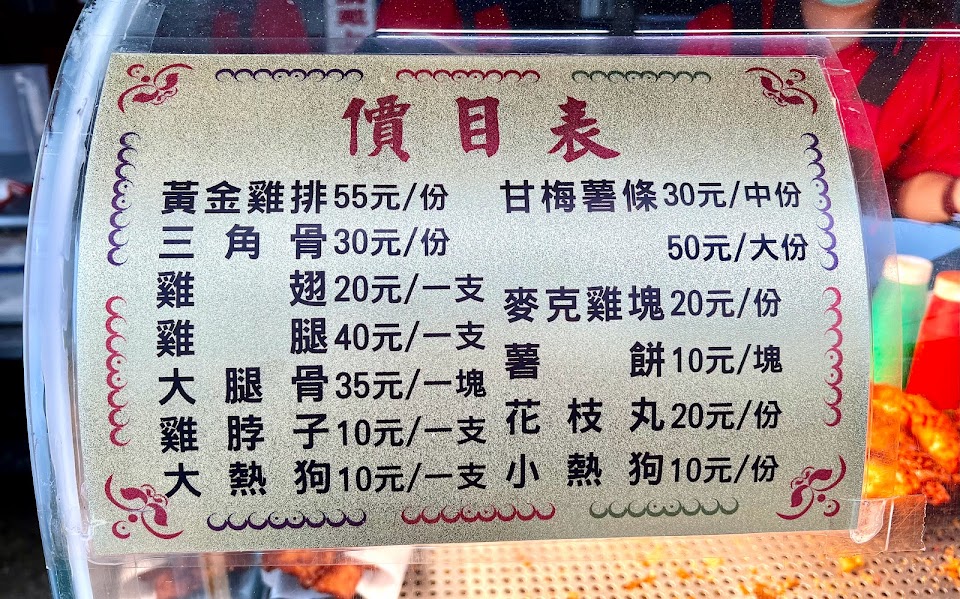 價目表
黃金雞排55元/份
三角骨30元/份
雞翅20元/一支
雞腿40元/一支
大腿骨35元/一塊
雞脖子10元/一支
大熱狗10元/一支
甘梅薯條30元/中份
50元/大份
麥克雞塊20元/份
薯餅10元/塊
花枝丸20元/份
小熱狗10元/份